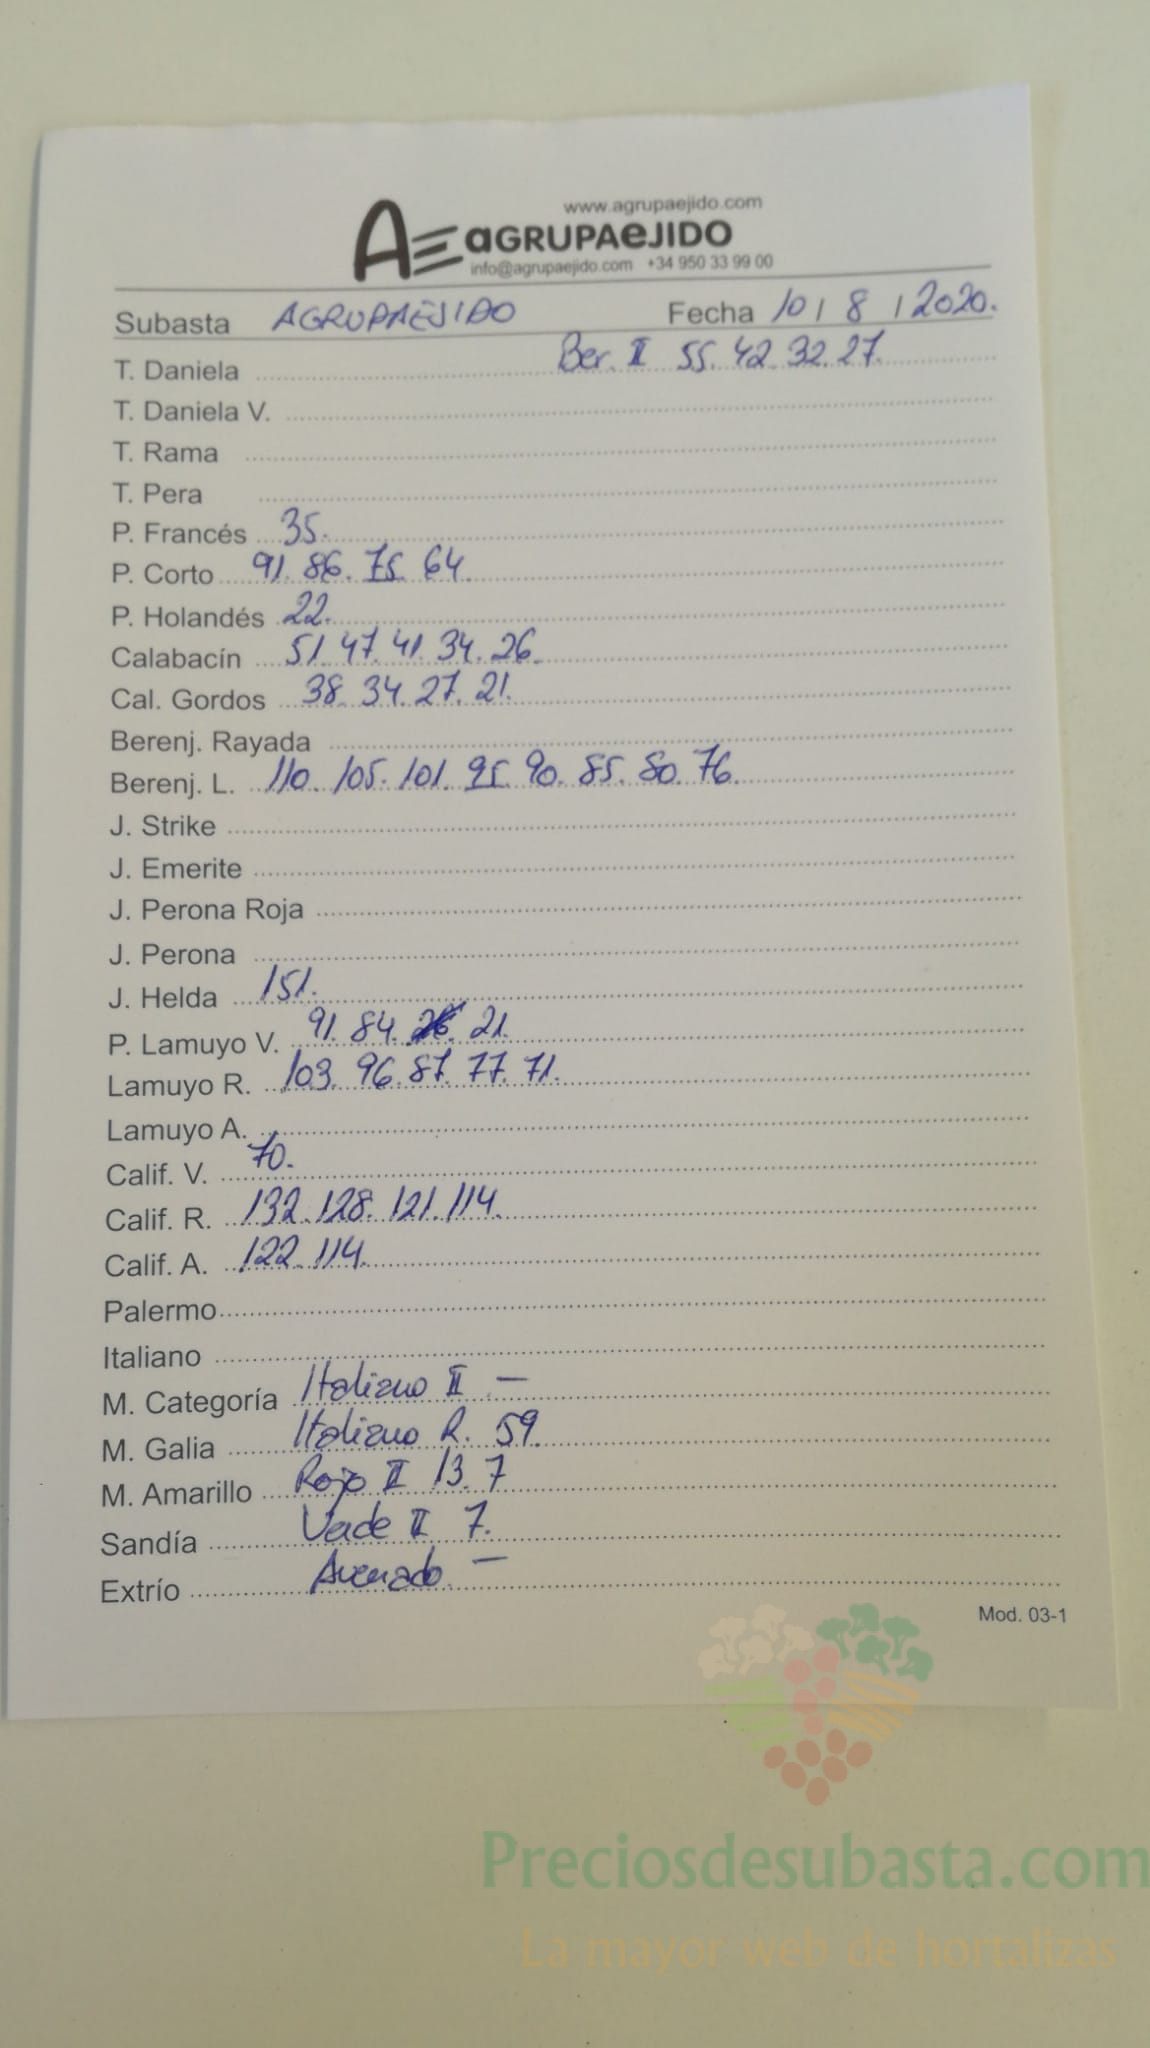 www.agrupaejido.com
AGRUPAEJIDO
info@agrupaejido.com +34 950 33 99 00
Subasta AGRUPAEJIDO Fecha 10 / 8 / 2020.
Ber. II 55. 42. 32. 27.
T. Daniela
T. Daniela V.
T. Rama
T. Pera
P. Francés 35.
P. Corto 91. 86. 75. 64.
P. Holandés 22.
Calabacín 51. 47. 41. 34. 26.
Cal. Gordos 38. 34. 27. 21.
Berenj. Rayada
Berenj. L. 110. 105. 101. 95. 90. 85. 80. 76.
J. Strike
J. Emerite
J. Perona Roja
J. Perona
J. Helda 151.
P. Lamuyo V. 91. 84. 21.
Lamuyo R. 103. 96. 87. 77. 71.
Lamuyo A.
Calif. V. 70.
Calif. R. 132. 128. 121. 114.
Calif. A. 122. 114.
Palermo
Italiano
M. Categoría Italiano II —
M. Galia Italiano R. 59.
M. Amarillo Rojo II 13. 7
Sandía Verde II 7.
Extrío Asurado. —
Mod. 03-1
Preciosdesubasta.com
La mayor web de hortalizas